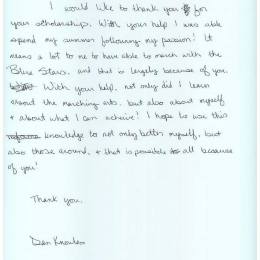 I would like to thank you for
your scholarship. With your help I was able
spend my summer following my passion! It
means a lot to me to have able to march with the
Blue Stars, and that is largely because of you.
With your help, not only did I learn
about the marching arts, but also about myself
+ about what I can acheive! I hope to use this
knowledge to not only better myself, but
also those around, + that is possible all because
of you!
Thank you,
Dan Knowles